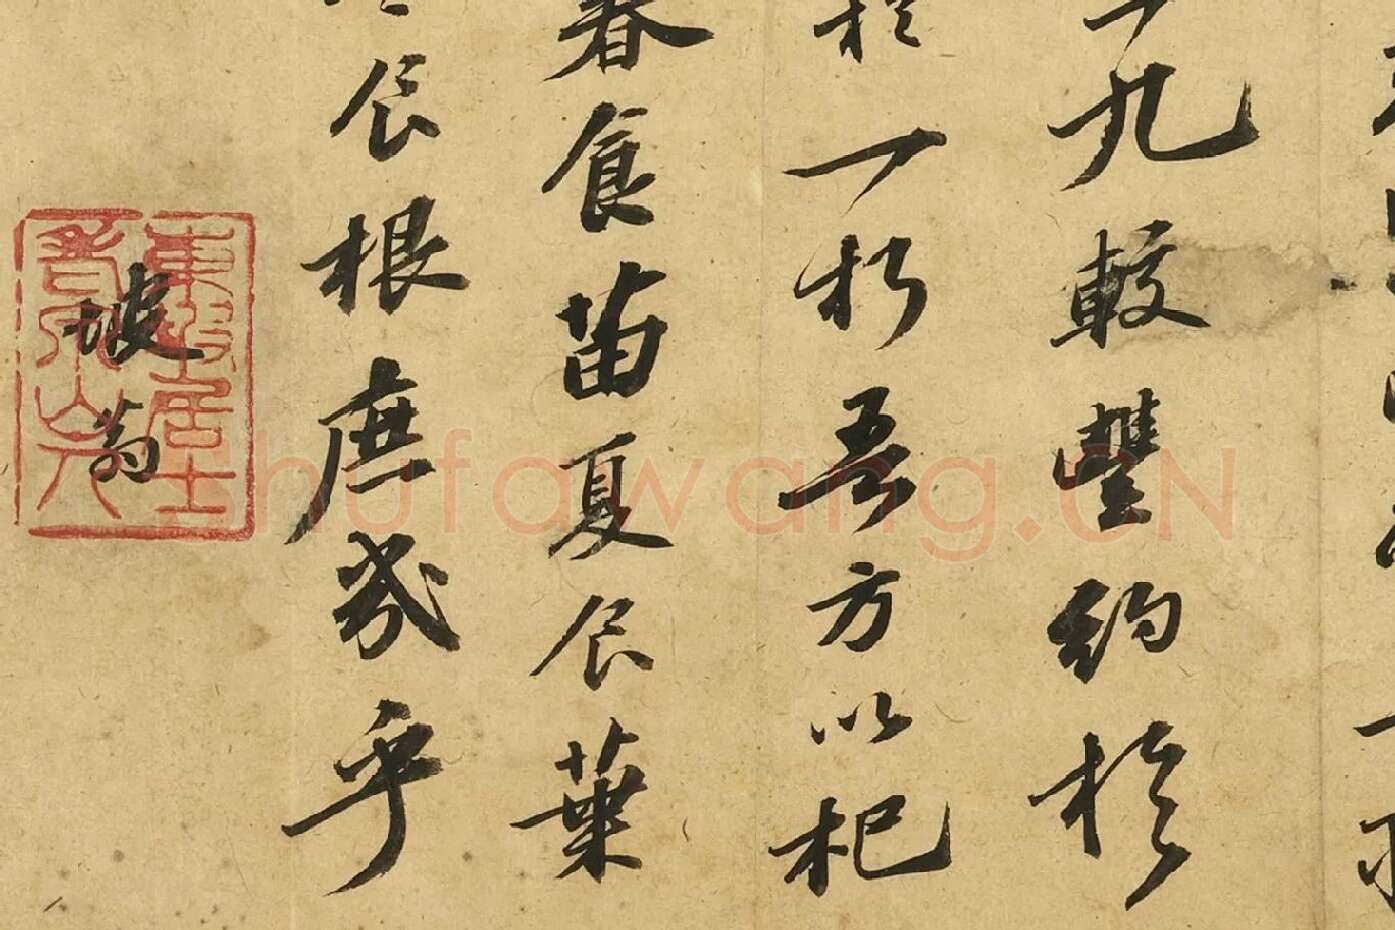 九較豐約於
於一朽吾方以杞
春食苗夏食葉
食根庶幾乎
坡翁
東坡居士
老泉山人
shufawang.CN